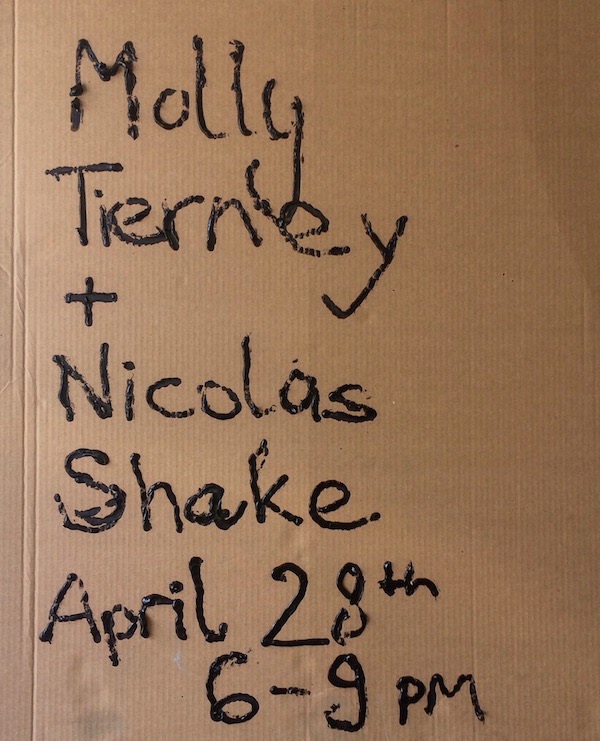 Molly
Tierney
+
Nicolas
Shake
April 28th
6-9 PM